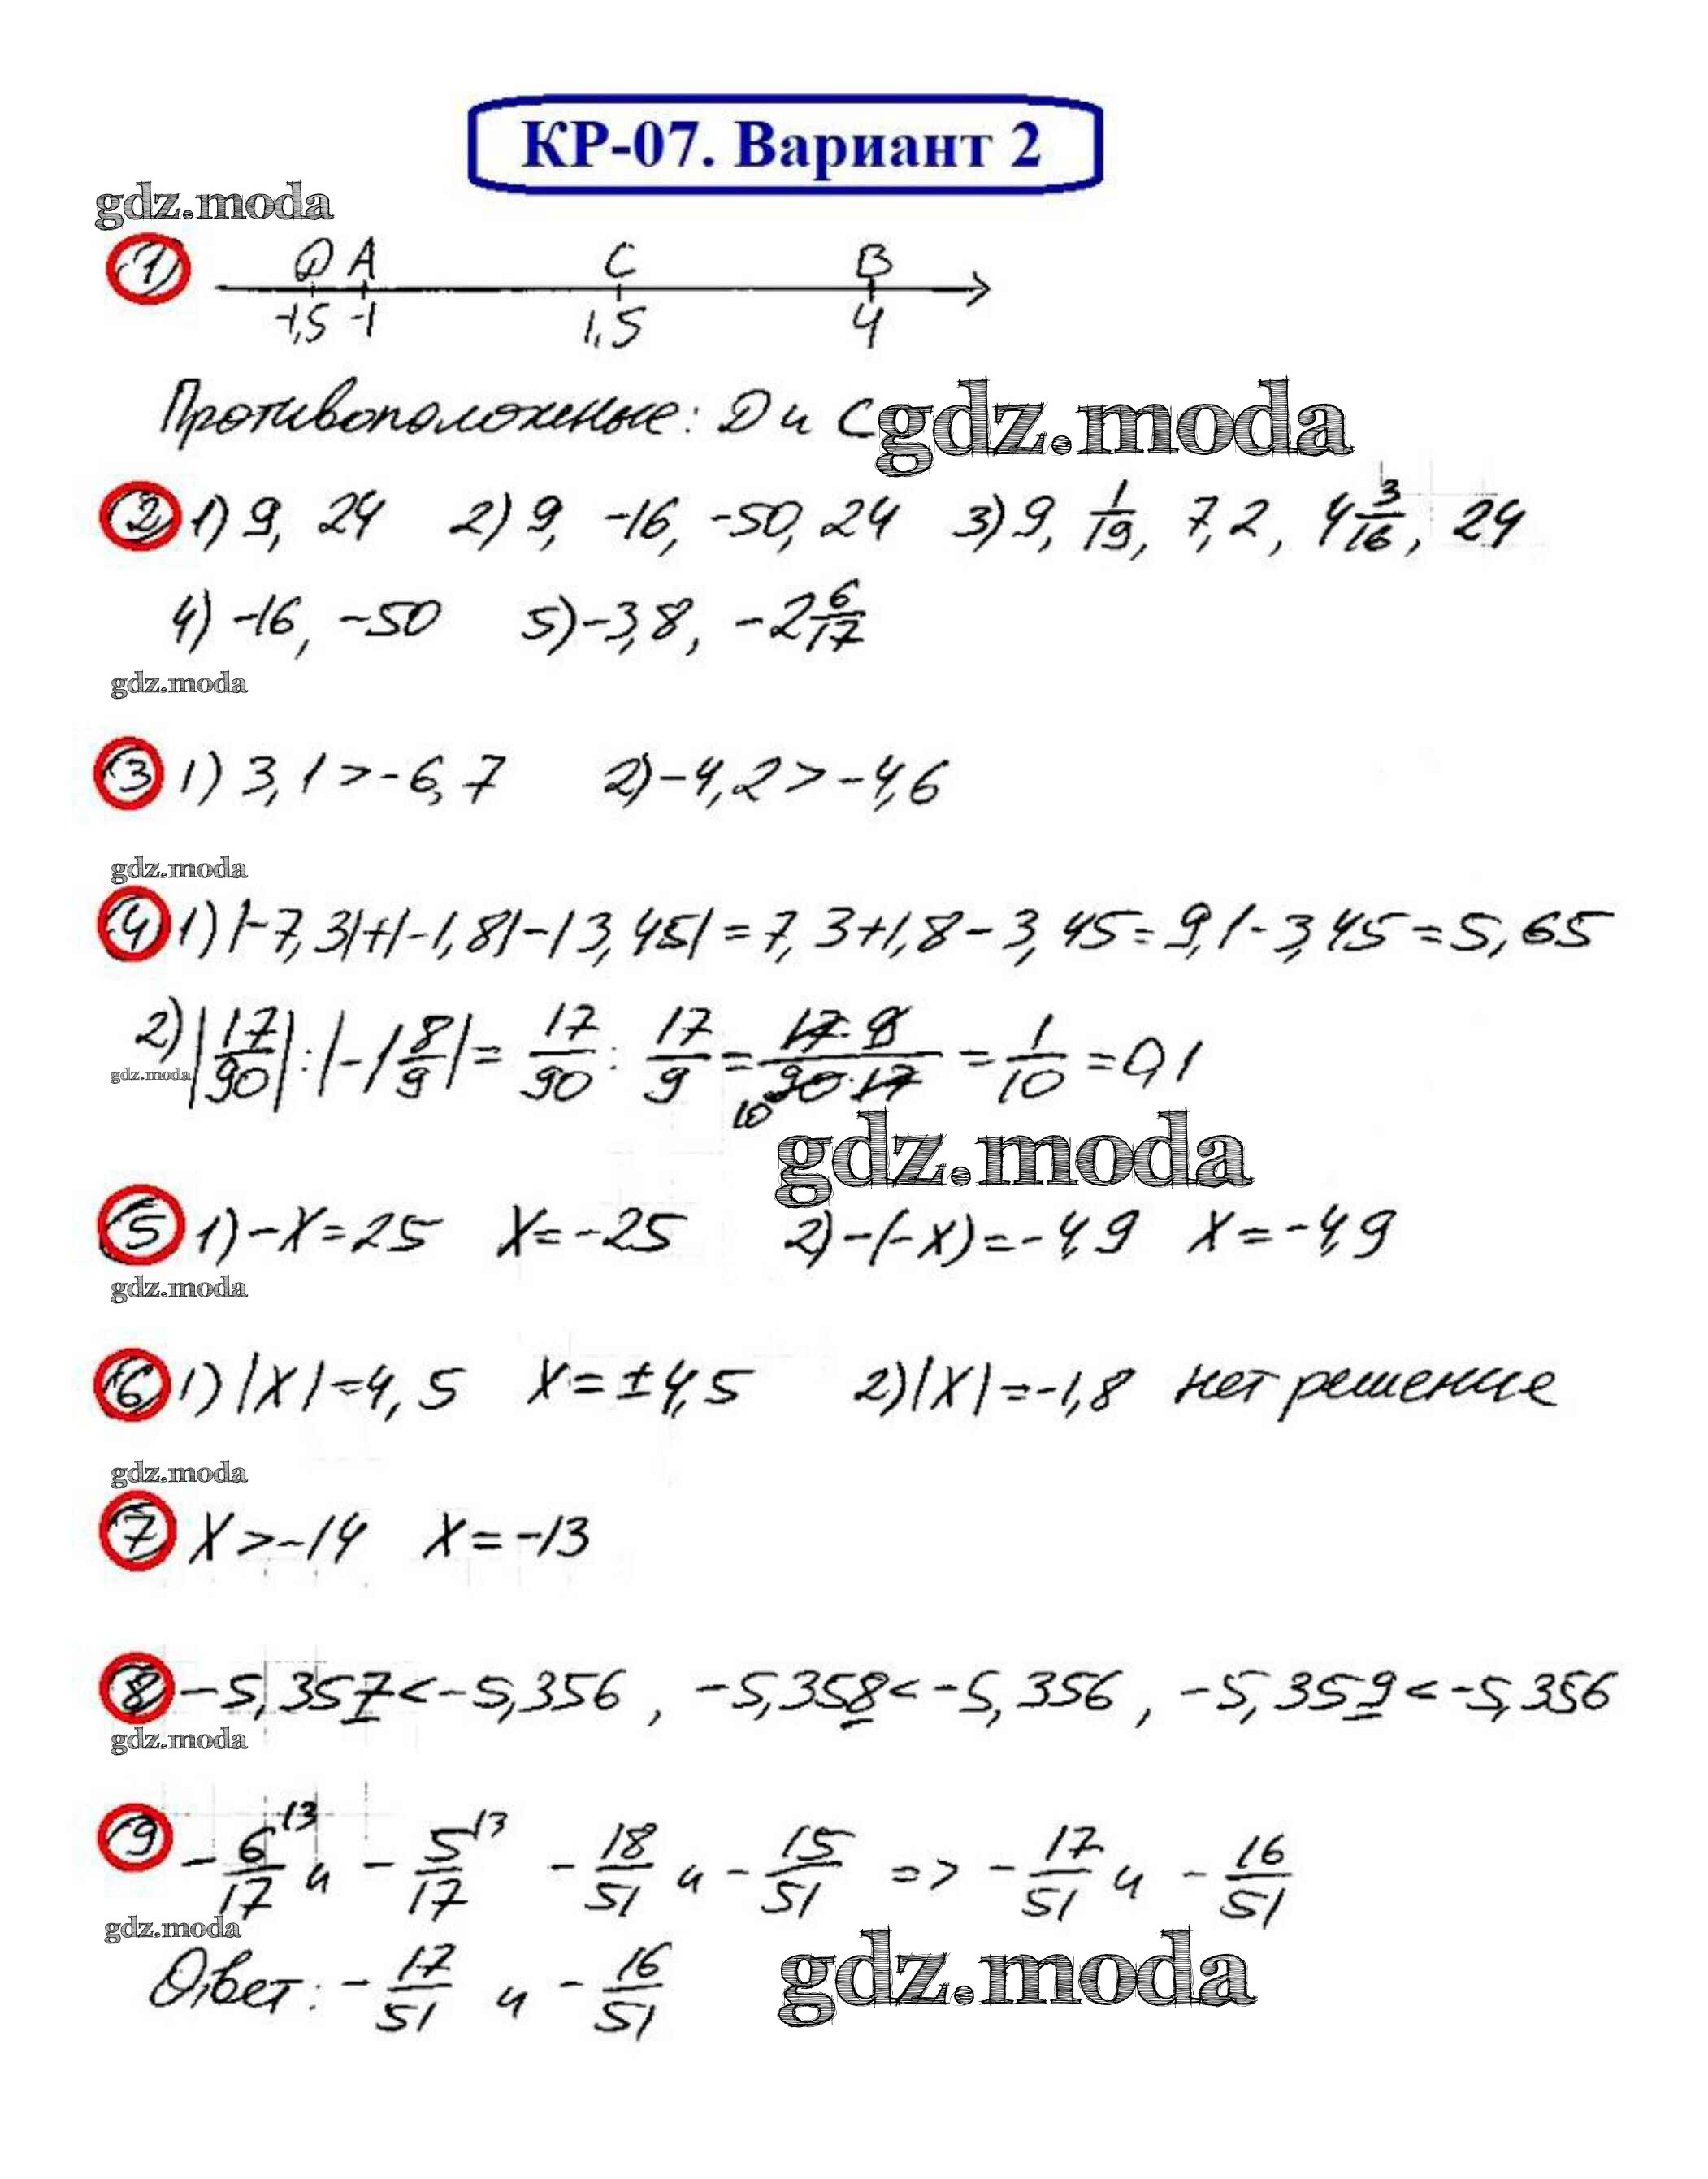 КР-07. Вариант 2
gdz.moda
1 D A C B
-1,5 -1 1,5 4
Противоположные: D и C gdz.moda
2 1) 9, 24 2) 9, -16, -50, 24 3) 9, 1/19, 7,2, 4 3/16, 24
4) -16, -50 5) -3,8, -2 6/17
gdz.moda
3 1) 3,1 > -6,7 2) -4,2 > -4,6
gdz.moda
4 1) |-7,3|+|-1,8|-|3,45| = 7,3+1,8-3,45 = 9,1-3,45 = 5,65
2) |17/90| : |-1 8/9| = 17/90 : 17/9 = 17·9/90·17 = 1/10 = 0,1
10
gdz.moda
gdz.moda
5 1) -X = 25 X = -25 2) -(-X) = -4,9 X = -4,9
gdz.moda
6 1) |X| = 4,5 X = ±4,5 2) |X| = -1,8 нет решение
gdz.moda
7 X > -14 X = -13
8 -5,357 < -5,356, -5,358 < -5,356, -5,359 < -5,356
gdz.moda
9 -6/17 |3 и -5/17 |3 -18/51 и -15/51 => -17/51 и -16/51
gdz.moda
Ответ: -17/51 и -16/51 gdz.moda